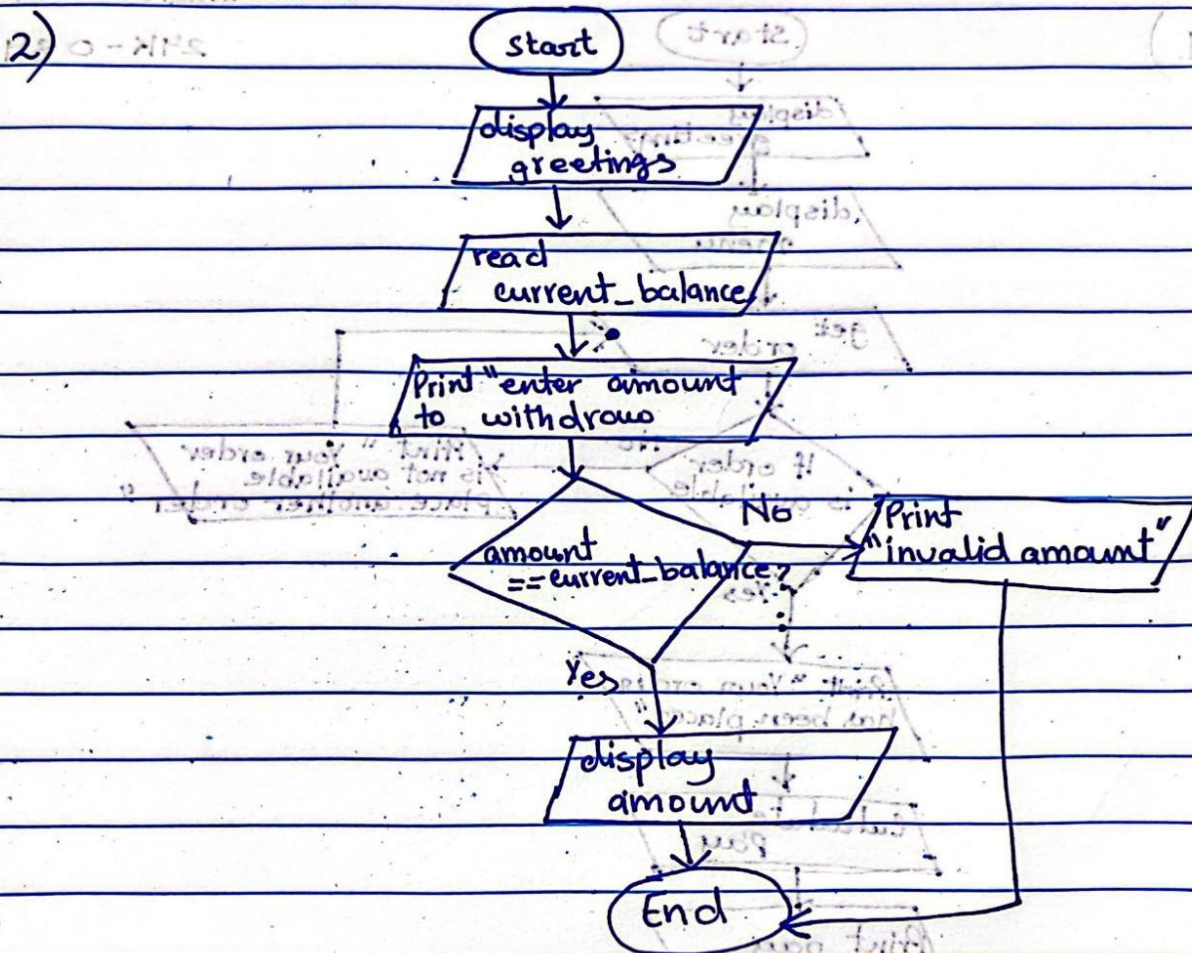 2)
start
display
greetings
read
current_balance
Print "enter amount
to withdraw
amount
==current_balance?
No
Print
"invalid amount"
Yes
display
amount
End